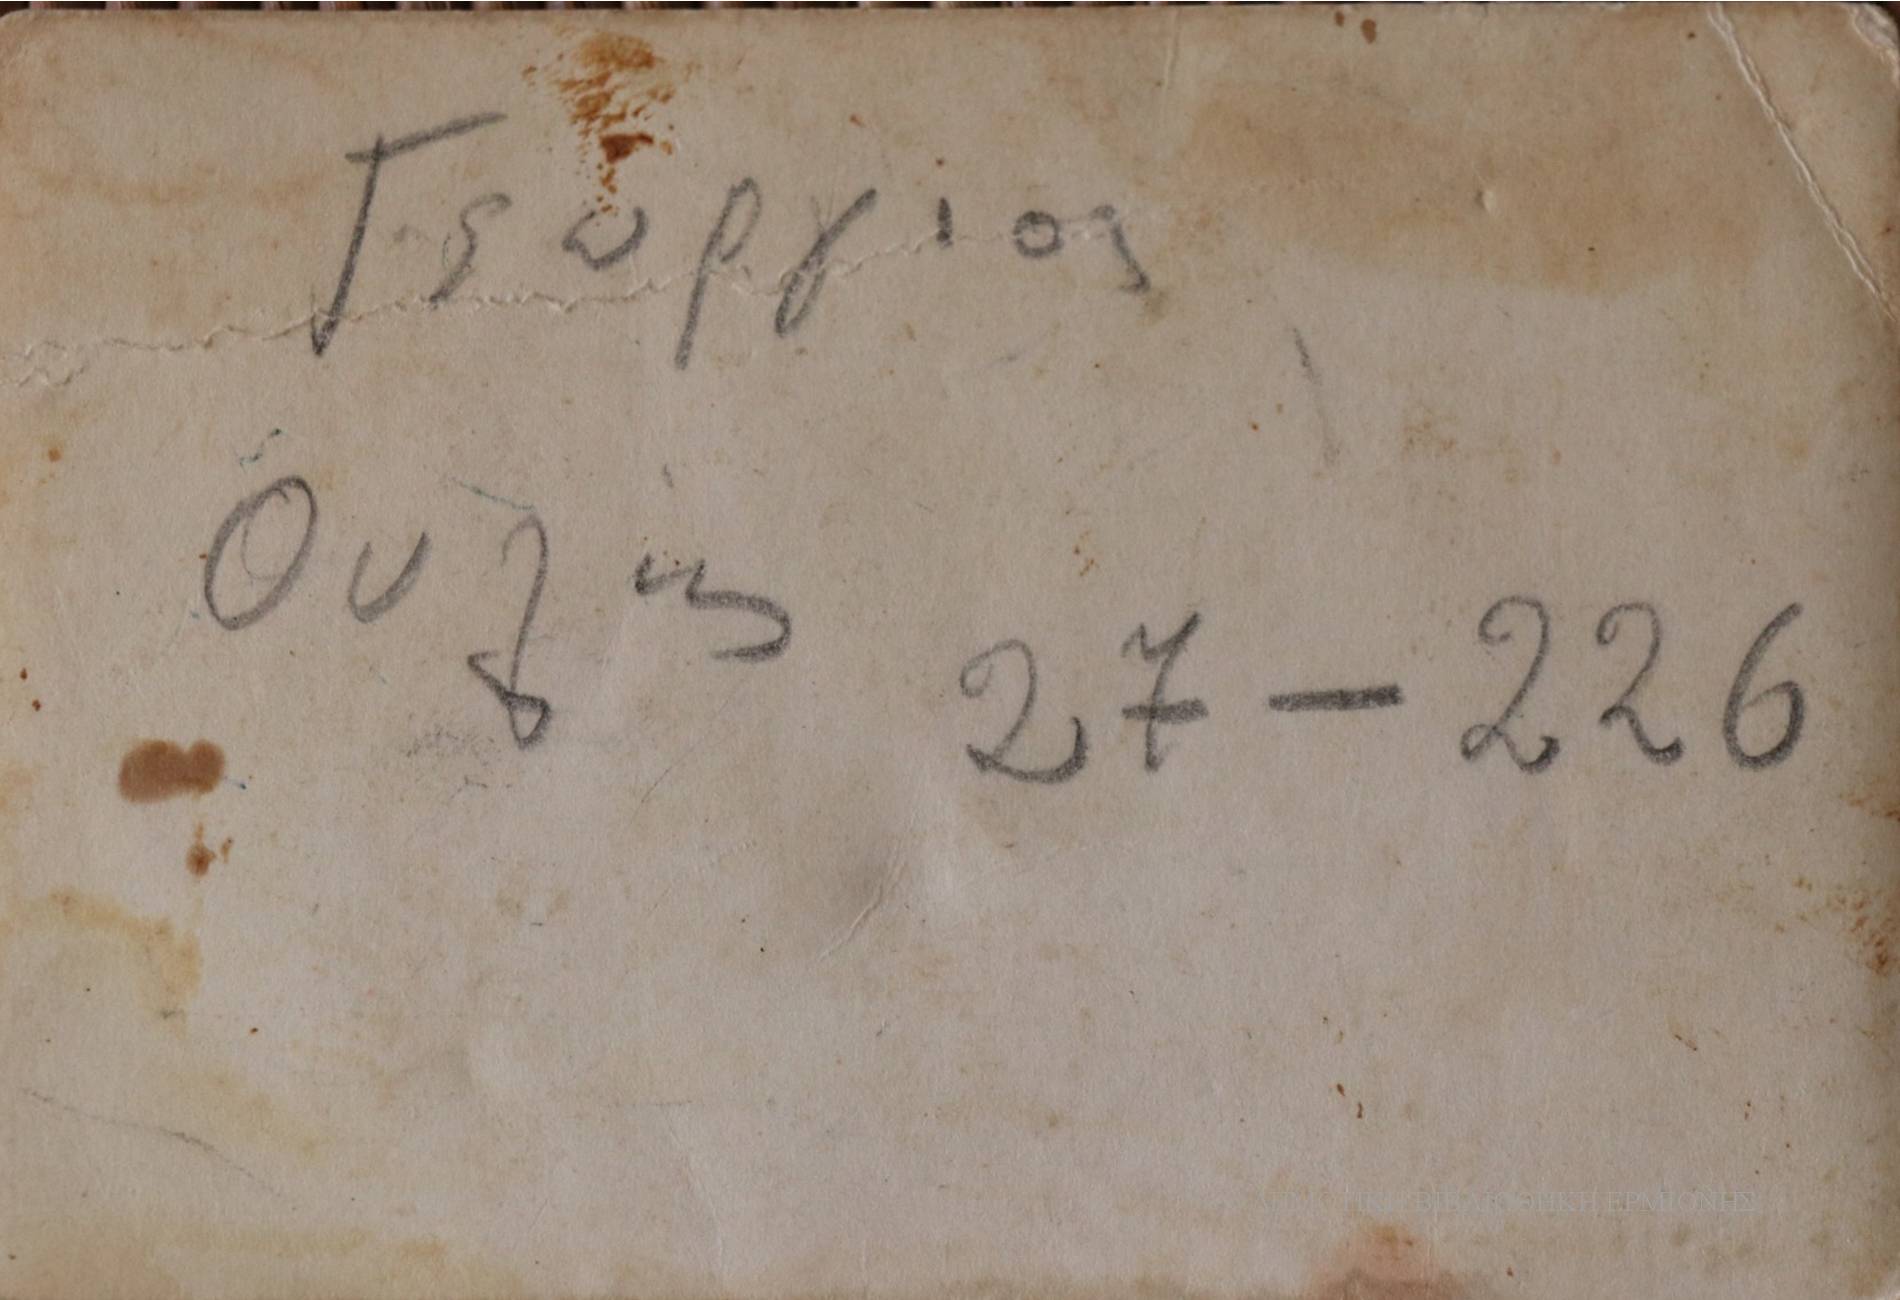 Γεωργιος
Ουζης
27 — 226
ΒΙΒΛΙΟΘΗΚΗ ΕΡΜΙΟΝΗΣ